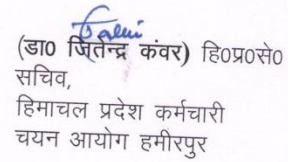 (डा० जितेन्द्र कंवर) हि०प्र०से०
सचिव,
हिमाचल प्रदेश कर्मचारी
चयन आयोग हमीरपुर